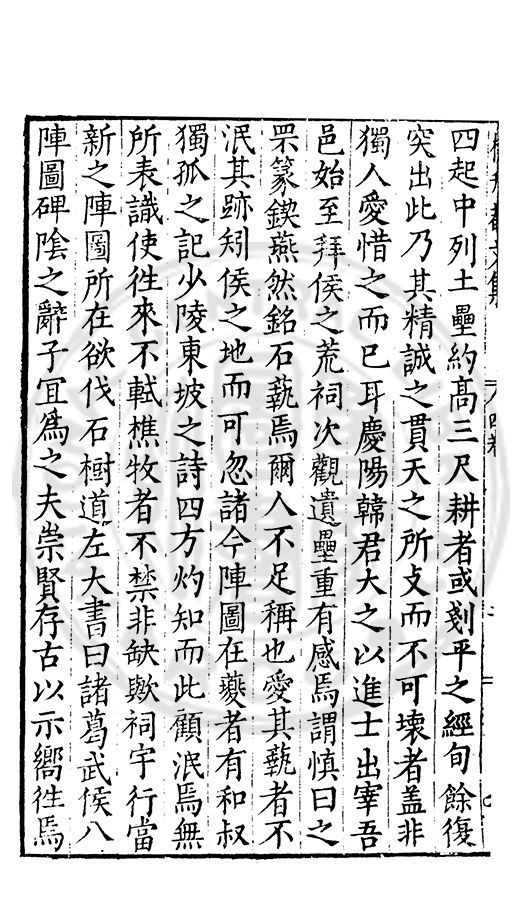 四起中列土壘約高三尺耕者或剗平之經旬餘復
突出此乃其精誠之貫天之所攴而不可壞者盖非
獨人愛惜之而已耳慶陽韓君大之以進士出宰吾
邑始至拜侯之荒祠次觀遺壘重有感焉謂慎曰之
罘篆鍥燕然銘石蓺焉爾人不足稱也愛其蓺者不
泯其跡矧侯之地而可忽諸今陣圖在夔者有和叔
獨孤之記少陵東坡之詩四方灼知而此顧泯焉無
所表識使徃來不軾樵牧者不禁非缺歟祠宇行當
新之陣圖所在欲伐石樹道左大書曰諸葛武侯八
陣圖碑隂之辭子冝為之夫崇賢存古以示嚮徃焉